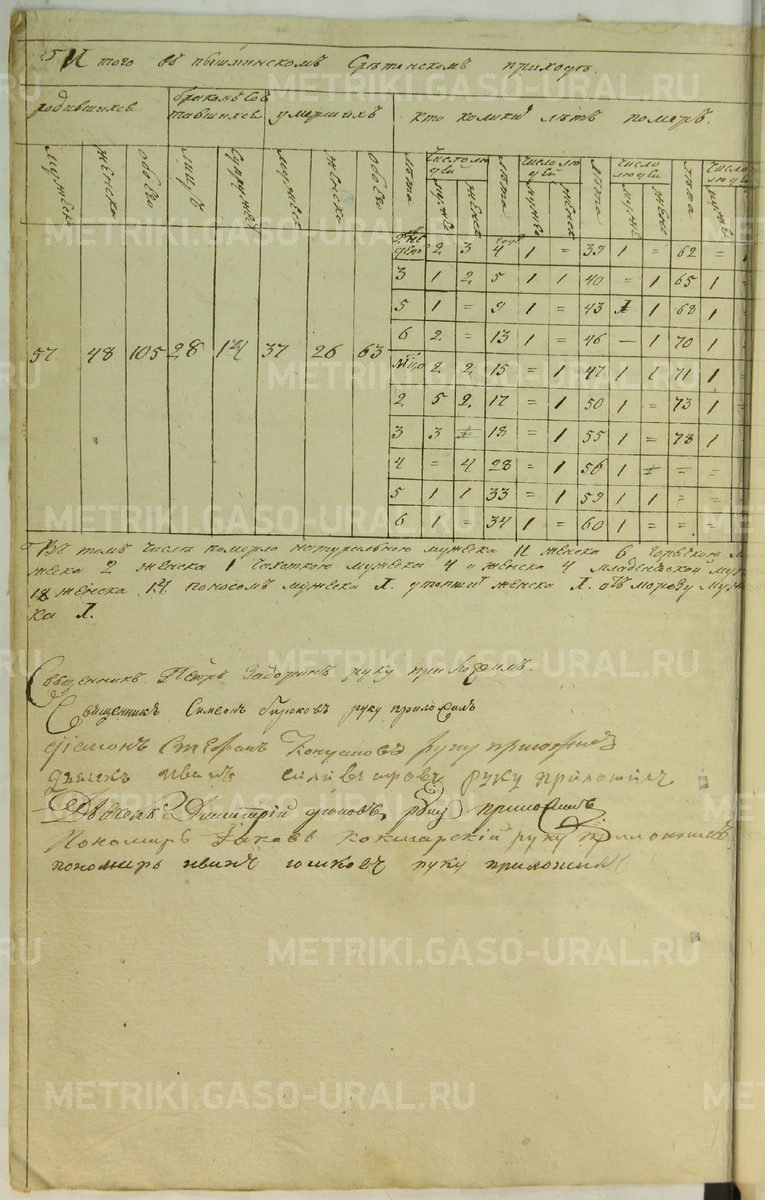 Итого въ пышминскомъ Срѣтенскомъ приходѣ.
родившихся бракомъ соче умершихъ кто коликихъ лѣтъ померъ.
тавшихся
мужеска женска обоего лицъ супружес мужеска женска обоего лѣта число людей лѣта число людей лѣта число людей лѣта число людей
мужес женск мужес женск мужес женс мужес
2 3 4 1 = 39 1 = 62 =
3 1 2 5 1 1 40 = 1 65 1
5 1 = 9 1 = 43 1 68 1
6 2 = 13 1 = 46 — 1 70 1
57 48 105 28 14 37 26 63
2 2 15 = 1 47 1 1 71 1
2 5 2 17 = 1 50 1 = 73 1
3 3 18 = 1 55 1 = 78 1
4 = 4 28 = 1 56 1 = = =
5 1 1 33 = 1 59 1 1 = =
6 1 = 34 1 = 60 1 = = =
Въ томъ числѣ померло натурально мужеска 11 женска 6 горячкою му
жеска 2 женска 1 сахоткою мужеска 4 и женска 4 младенческой муж
18 женска 14 поносомъ мужеска 1. утопшей женска 1. отъ морозу мужес
ка 1.
Священникъ Петръ Задоринъ руку приложилъ.
Священникъ Симеонъ Бирюковъ руку приложилъ
діаконъ Стефанъ руку приложилъ
дьячекъ Иванъ селивестровъ руку приложилъ
Дьячекъ Димитрій поповъ руку приложилъ
Пономарь Іаковъ Кокшарскій руку приложилъ
пономарь иванъ гомковъ руку приложилъ
METRIKI.GASO-URAL.RU